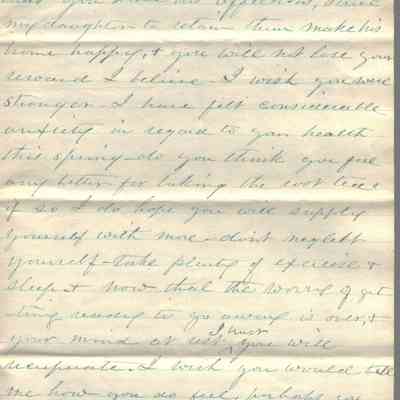 my daughter to retain them make his
home happy, & you will not lose your
reward I believe - I wish you were
stronger - I have felt considerable
anxiety in regard to your health
this spring - do you think you feel
any better for taking the root tea &
if so I do hope you will supply
yourself with more - don't neglect
yourself - take plenty of exercise &
sleep & now that the worry of get
ting ready to go away is over, &
your mind at rest, I trust you will
recuperate. I wish you would tell
me how you do feel, perhaps you